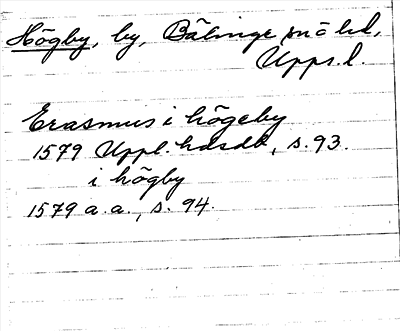 Högby, by, Bälinge sn o hd,
Upps.l.
Erasmus i högeby
1579 Uppl. handl., s. 93.
i högby
1579 a.a., s. 94.